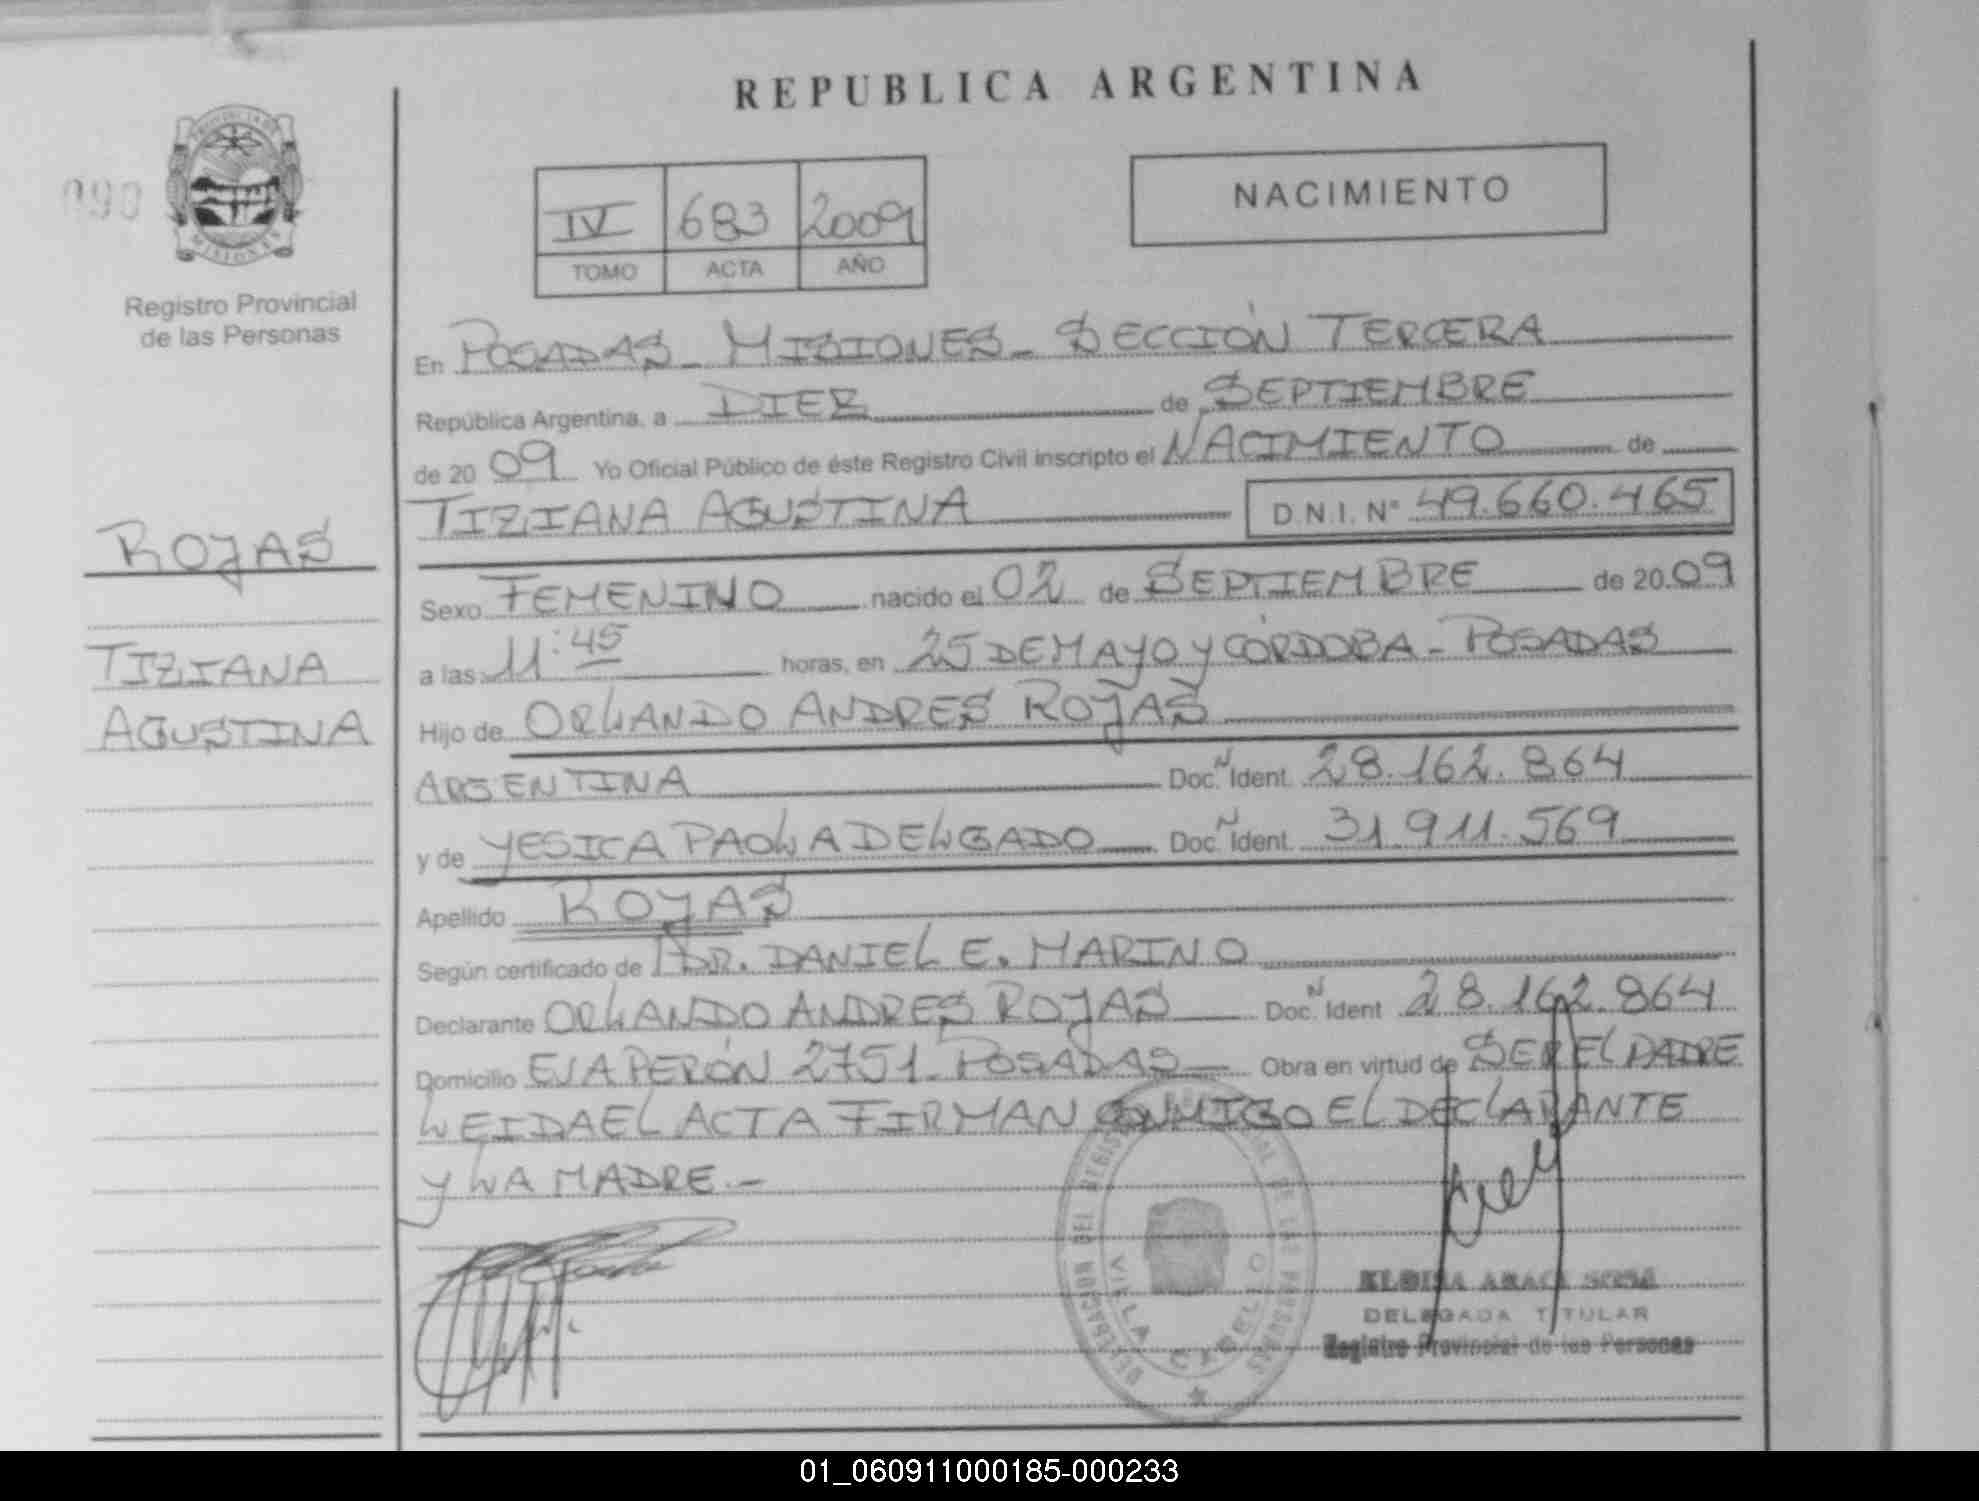 REPUBLICA ARGENTINA
090
PROVINCIA DE
MISIONES
Registro Provincial
de las Personas
IV 683 2009
TOMO ACTA AÑO
NACIMIENTO
En POSADAS - MISIONES - SECCIÓN TERCERA
República Argentina, a DIEZ de SEPTIEMBRE
de 20 09 Yo Oficial Público de éste Registro Civil inscripto el NACIMIENTO de
TIZIANA AGUSTINA D.N.I. Nº 49.660.465
ROJAS
TIZIANA
AGUSTINA
Sexo FEMENINO nacido el 02 de SEPTIEMBRE de 20 09
a las 11:45 horas, en 25 DE MAYO Y CÓRDOBA - POSADAS
Hijo de ORLANDO ANDRES ROJAS
ARGENTINA Doc. N Ident. 28.162.864
y de YESICA PAOLA DELGADO Doc. N Ident. 31.911.569
Apellido ROJAS
Según certificado de DR. DANIEL E. MARINO
Declarante ORLANDO ANDRES ROJAS Doc. N Ident 28.162.864
Domicilio EVA PERÓN 2751 - POSADAS Obra en virtud de SER EL PADRE
LEIDA EL ACTA FIRMAN CONMIGO EL DECLARANTE
Y LA MADRE.-
DELEGACION DEL REGISTRO DE LAS PERSONAS
VILLA CABELLO
DELEGADA TITULAR
Registro Provincial de las Personas
01_060911000185-000233